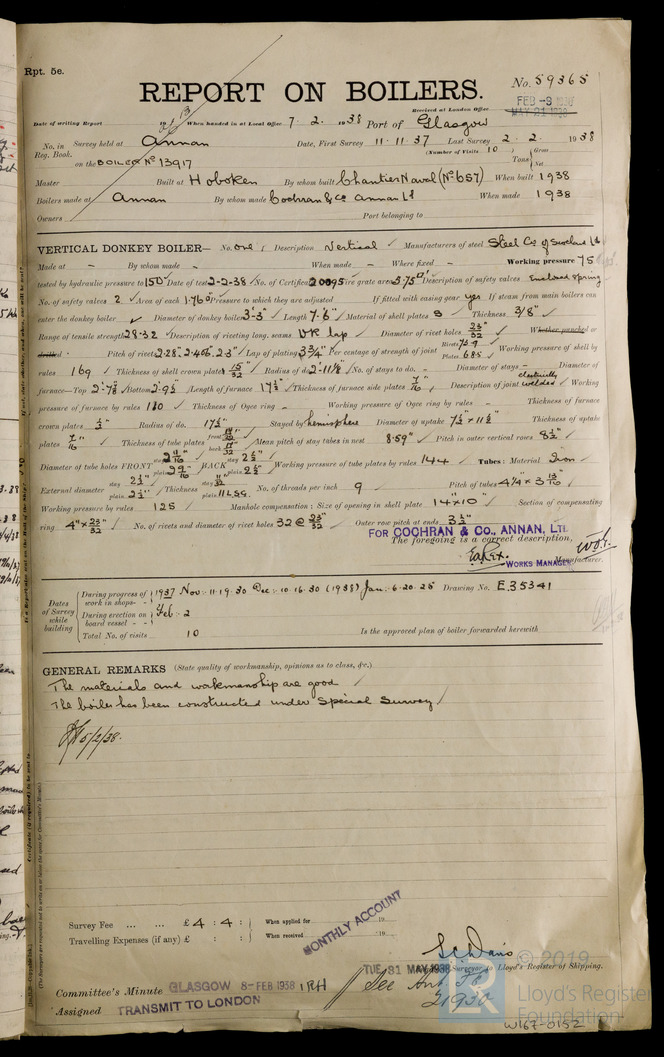 Rpt. 5e.
REPORT ON BOILERS.
No. 59365
Received at London Office
FEB -9 1938
MAY 21 1938
Date of writing Report 19 When handed in at Local Office 7. 2. 1938 Port of Glasgow
No. in Reg. Book. Survey held at Annan Date, First Survey 11. 11. 37 Last Survey 2. 2. 1938
(Number of Visits 10 )
on the BOILER No 13917 Tons { Gross Net
Master Built at Hoboken By whom built Chantier Naval (No 657) When built 1938
Boilers made at Annan By whom made Cochran & Co Annan Ld When made 1938
Owners Port belonging to
VERTICAL DONKEY BOILER— No. one Description Vertical Manufacturers of steel Steel Co of Scotland Ld
Made at - By whom made - When made - Where fixed - Working pressure 75
tested by hydraulic pressure to 150 Date of test 2-2-38 No. of Certificate 20095 Fire grate area 5.75 Description of safety valves Enclosed Spring
No. of safety valves 2 Area of each 1.76 Pressure to which they are adjusted If fitted with easing gear yes If steam from main boilers can
enter the donkey boiler Diameter of donkey boiler 3'-3" Length 7'-6" Material of shell plates S Thickness 3/8"
Range of tensile strength 28-32 Description of riveting long. seams DR lap Diameter of rivet holes 23/32" Whether punched or
drilled Pitch of rivets 2.28" 2.406 2.3" Lap of plating 3 3/4" Per centage of strength of joint Rivets 72.9 Plates 68.5 Working pressure of shell by
rules 169 Thickness of shell crown plates 15/32" Radius of do. 2'-11 1/2" No. of stays to do. - Diameter of stays - Diameter of
furnace—Top 2'-7 7/8" Bottom 2'-9 1/2" Length of furnace 17 1/2" Thickness of furnace side plates 7/16" Description of joint electrically welded Working
pressure of furnace by rules 130 Thickness of Ogee ring - Working pressure of Ogee ring by rules - Thickness of furnace
crown plates 1/2" Radius of do. 17 1/2" Stayed by hemisphere Diameter of uptake 7 1/2" x 11 1/2" Thickness of uptake
plates 7/16" Thickness of tube plates front back Mean pitch of stay tubes in nest 8.59" Pitch in outer vertical rows 8 1/2"
Diameter of tube holes FRONT stay 2 11/16" plain 2 9/16" BACK stay 2 1/2" plain 2 1/2" Working pressure of tube plates by rules 144 Tubes: Material Iron
External diameter stay 2 1/2" plain 2 1/2" Thickness plain 11 LSG. No. of threads per inch 9 Pitch of tubes 4 1/4" x 3 13/16"
Working pressure by rules 125 Manhole compensation: Size of opening in shell plate 14" x 10" Section of compensating
ring 4" x 23/32" No. of rivets and diameter of rivet holes 32 @ 23/32" Outer row pitch at ends 3 1/2"
FOR COCHRAN & CO., ANNAN, LTD.
The foregoing is a correct description,
WORKS MANAGER Manufacturer.
Dates of Survey while building
During progress of work in shops- - 1937 Nov: 11. 19. 30 Dec: 10. 16. 30 (1938) Jan: 6. 20. 26 Drawing No. E.35341
During erection on board vessel - - Feb: 2
Total No. of visits 10 Is the approved plan of boiler forwarded herewith
GENERAL REMARKS (State quality of workmanship, opinions as to class, &c.)
The materials and workmanship are good
The boiler has been constructed under Special Survey
5/2/38.
Survey Fee ... ... £ 4 : 4 : When applied for 19
Travelling Expenses (if any) £ : : When received 19
MONTHLY ACCOUNT
Surveyor to Lloyd's Register of Shipping.
TUE. 31 MAY 1938
Committee's Minute GLASGOW 8-FEB 1938
Assigned TRANSMIT TO LONDON
See
© 2019
Lloyd's Register
Foundation
W167-0152